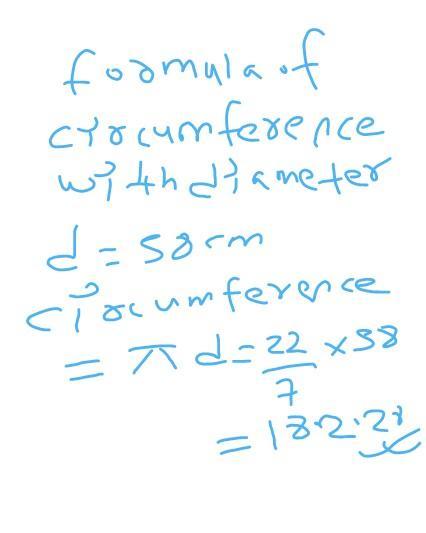 formula of
circumference
with diameter
d = 58 cm
circumference
= π d = 22/7 × 58
= 182.28